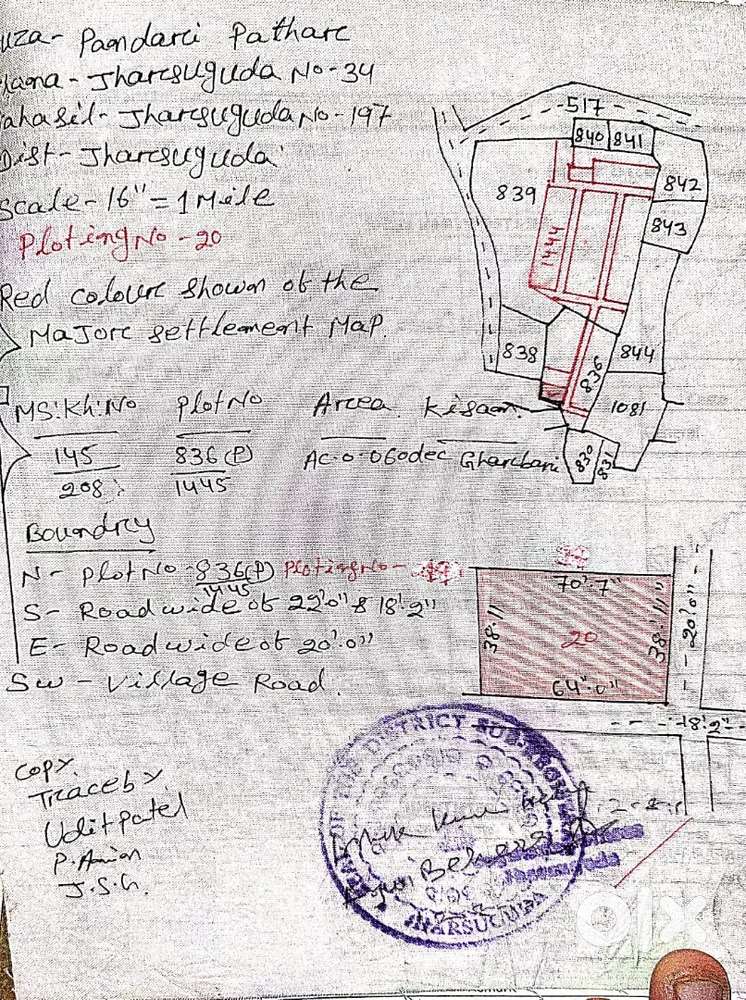 uza- Pandari Pathar
ana- Jharsuguda No-34
ahasil- Jharsuguda No-197
Dist- Jharsuguda
Scale- 16" = 1 Mile
Ploting No - 20
Red colour shown of the
Major settlement Map.
MS: Kh: No Plot No Area. Kisam.
145 836 (P) AC.0.060 dec Gharabari
208 1445
Boundry
N- Plot No- 836(P) Ploting No- 
1445
S- Road wide of 22'.0" & 18'.2"
E- Road wide of 20'.0"
SW - Village Road.
Copy
Trace by
Udit patel
P. Amin
J.S.G.
517
840 841
839
842
843
1444
838
836
844
1081
830
831
70'.7"
38.11
20
38'.11"
64'.0"
20'.0"
18'.2"
DISTRICT SUB
JHARSUGUDA
olx